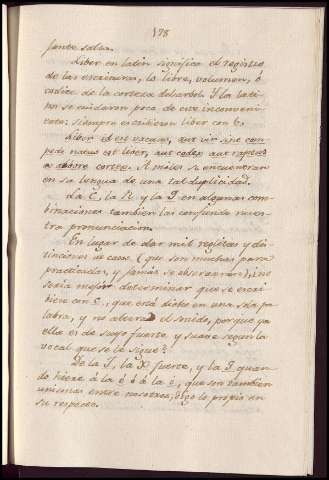 178
fante salva.
Liber en latin significa el registro
de las escrituras, lo libre, volumen, ó
codice de la corteza del arbol. Y los lati-
nos se cuidaron poco de este inconveni-
ente: siempre escribieron liber con b.
Liber id est vacuus, aut vir sine com-
pede natus est liber, aut codex aut raptus
ab arbore cortex. A miles se encuentran
en su lengua de una tal duplicidad.
La C, la X y la J en algunas com-
binaciones tambien las confunde nues-
tra pronunciacion.
En lugar de dar mil reglitas y dis-
tinciones de casos (que son muchas para
practicadas, y jamas se observaron), ¿no
seria mejor determinar que se escri-
biese con C, que está dicho en una sola pa-
labra, y no altera el sonido, porque ya
ella es de suyo fuerte, y suave segun la
vocal que se le sigue?
De la J, la X fuerte, y la G quan-
do hiere á la é ó á la i, que son tambien
unisonas entre nosotros, digo lo propio en
su respecto.